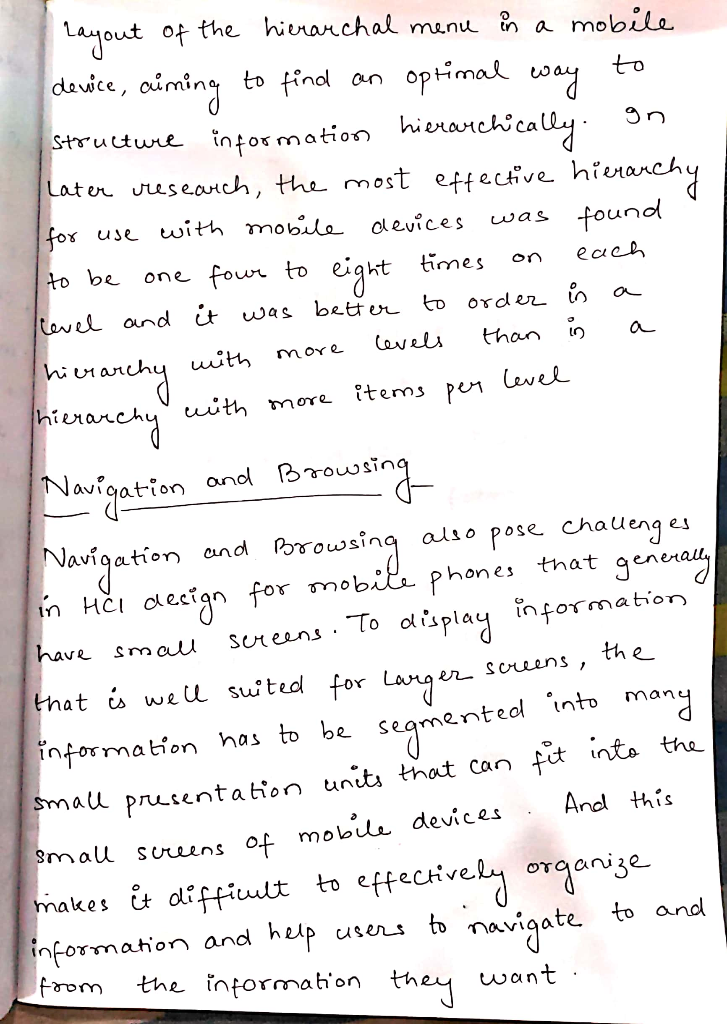 Layout of the hierarchal menu in a mobile
device, aiming to find an optimal way to
structure information hierarchically. In
Later research, the most effective hierarchy
for use with mobile devices was found
to be one four to eight times on each
level and it was better to order in a
hierarchy with more levels than in a
hierarchy with more items per level
Navigation and Browsing
Navigation and Browsing also pose challenges
in HCI design for mobile phones that generally
have small screens. To display information
that is well suited for larger screens, the
information has to be segmented into many
small presentation units that can fit into the
small screens of mobile devices. And this
makes it difficult to effectively organize
information and help users to navigate to and
from the information they want.